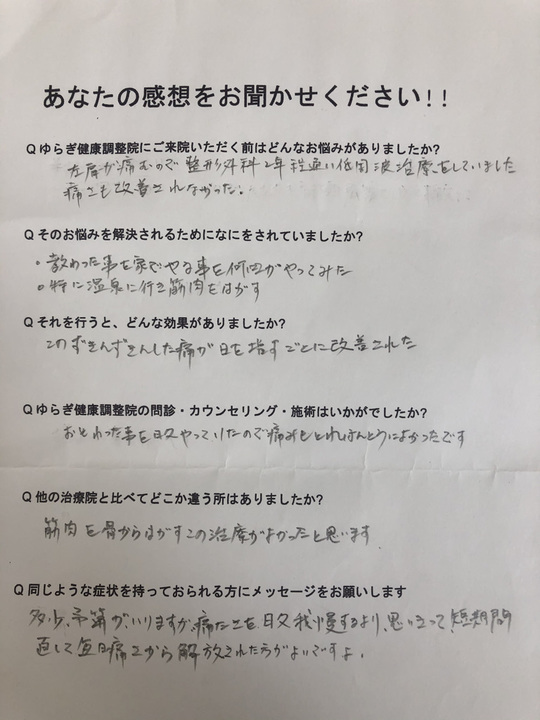 あなたの感想をお聞かせください!!
Qゆらぎ健康調整院にご来院いただく前はどんなお悩みがありましたか?
左肩が痛むので整形外科2年程通い低周波治療をしていました
痛さも改善されなかった.
Qそのお悩みを解決されるためになにをされていましたか?
・教わった事を家でやる事を何回かやってみた
・特に温泉に行き筋肉をはがす
Qそれを行うと、どんな効果がありましたか?
このずきんずきんした痛が日を指すごとに改善された
Qゆらぎ健康調整院の問診・カウンセリング・施術はいかがでしたか?
おとわった事を日々やっていたので痛みもとれほんとうによかったです
Q他の治療院と比べてどこか違う所はありましたか?
筋肉を骨からはがすこの治療がよかったと思います
Q同じような症状を持っておられる方にメッセージをお願いします
多少、予算がいりますが、痛たさを日々我慢するより、思いきって、短期間
直して毎日痛さから解放された方がよいですよ.